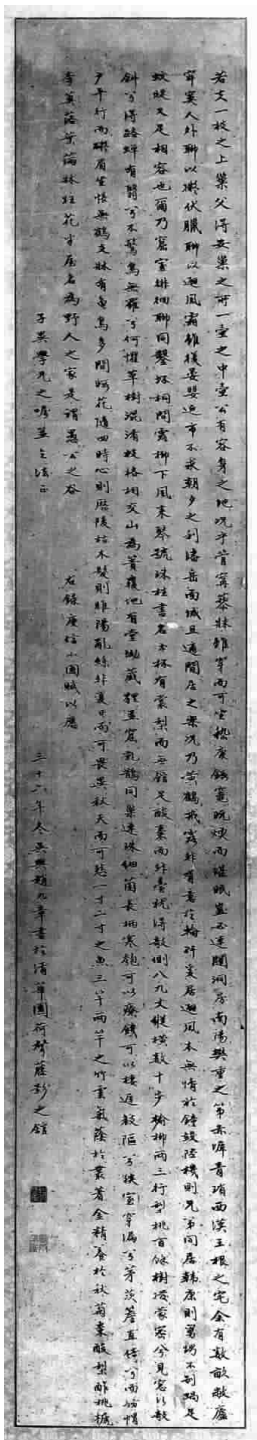 若夫一枝之上巢父得安巢之所一壺之中壺公有容身之地況乎管寧藜牀雖穿而可坐嵇康鍛竈既煖而堪眠豈必連闥洞房南陽樊重之第赤墀青瑣西漢王根之宅余有數畝敝廬
寂寞人外聊以擬伏臘聊以避風霜雖復晏嬰近市不求朝夕之利潘岳面城且適閒居之樂況乃黃鶴戒露非有意於輪軒爰居避風本無情於鐘鼓陸機則兄弟同居韓康則舅甥不別蝸角
蚊睫又足相容也爾乃窟室徘徊聊同鑿坯桐間露落柳下風來琴號珠柱書名玉杯有棠梨而無館足酸棗而非臺猶得欹側八九丈縱橫數十步榆柳兩三行梨桃百餘樹撥蒙密兮見窗行欹
斜兮得路蟬有翳兮不驚雉無羅兮何懼草樹混淆枝格相交山為簣覆地有堂坳藏貍並窟乳鵲同巢連珠細茵長柄寒匏可以療饑可以棲遲崎嶇兮狹室穿漏兮茅茨簷直倚兮而妨帽
戶平行而礙眉坐帳無鶴支牀有龜鳥多閒暇花隨四時心則歷陵枯木髮則睢陽亂絲非夏日而可畏異秋天而可悲一寸二寸之魚三竿兩竿之竹雲氣蔭於叢蓍金精養於秋菊棗酸梨酢桃榹
李薁落葉滿牀狂花半屋名為野人之家是謂愚公之谷 右錄庾信小園賦以應
子英學兄之囑並乞法正 三十六年冬吳興趙九章書於清華園荷聲藤影之館